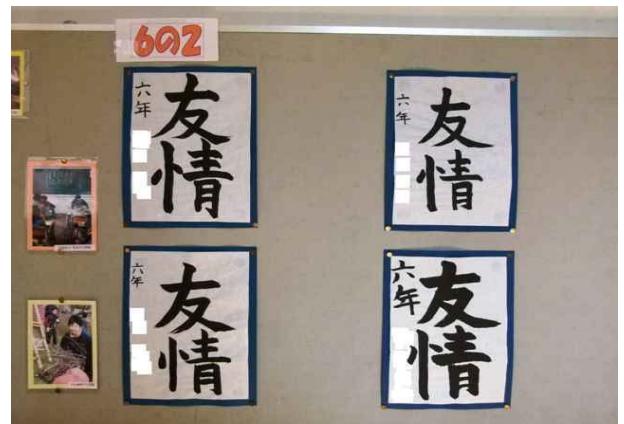 6の2
六年
友情
六年
友情
六年
友情
六年
友情